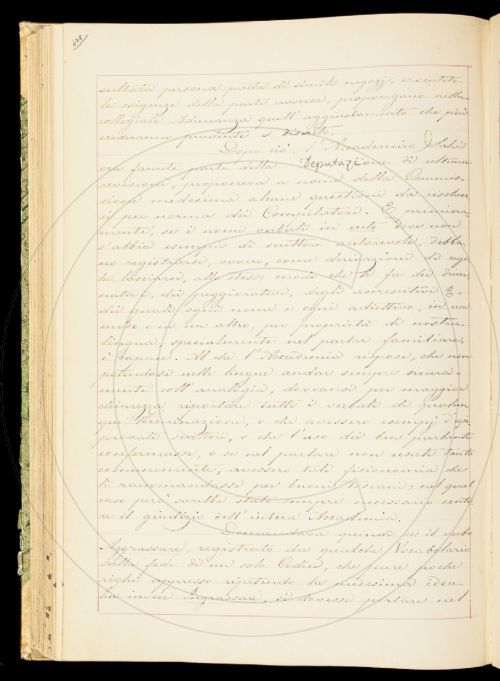 scelta persona perita di simili negozj, e sentite
le esigenze della parte avversa, proporranno nella
collegiale Adunanza quell' aggiustamento che più
crederanno prudente e
Dopo ciò l'Accademico
ora facente parte della Deputazione di ultima
revisione, proponeva a nome della Commis-
sione medesima alcune questioni da risolver-
si per norma dei Compilatori. E primiera-
mente, se i nomi verbali in dove non
s'abbia esempio di scrittore autorevole, debba-
no registrarsi, ovvero, come derivazioni di rego-
la lasciarsi, allo stesso modo che si fa dei dimi-
nutivi, dei peggiorativi, degli accrescitivi &.
dei quali ogni nome e ogni adiettivo, in un
modo o in un altro, per proprietà di nostra
lingua specialmente nel parlar familiare,
è capace. Al che l'Accademia rispose, che non
potendosi nelle lingue andar sempre sicura-
mente coll' analogia, dovevansi per maggior
chiarezza riportare tutti i verbali di qualun-
que terminazione, o che avessero esempj d'ap-
provati scrittori, o che l'uso dei ben parlanti
confermasse, o se nel parlare non usate tanto
comunemente, avessero tale fisionomia che
si raccomandasse per buoni toscani; nel qual
caso però sarebbe stato sempre necessario senti-
re il giudizio dell' intera Accademia.
Domandava quindi se il verbo
Aggrassare, registrato da qualche Vocabolario
sulla fede di un solo Codice, che pure poche
righe appresso ripetendo la medesima idea
ha invece Ingrassare, si dovesse portare nel